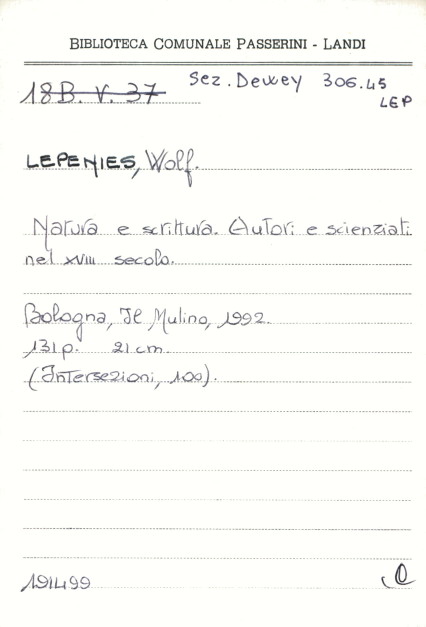 BIBLIOTECA COMUNALE PASSERINI - LANDI
18B. V. 37 Sez. Dewey 306.45
LEP
LEPENIES, Wolf.
Natura e scrittura. Autori e scienziati
nel XVIII secolo.
Bologna, Il Mulino, 1992.
131 p. 21 cm.
(Intersezioni, 100).
191499